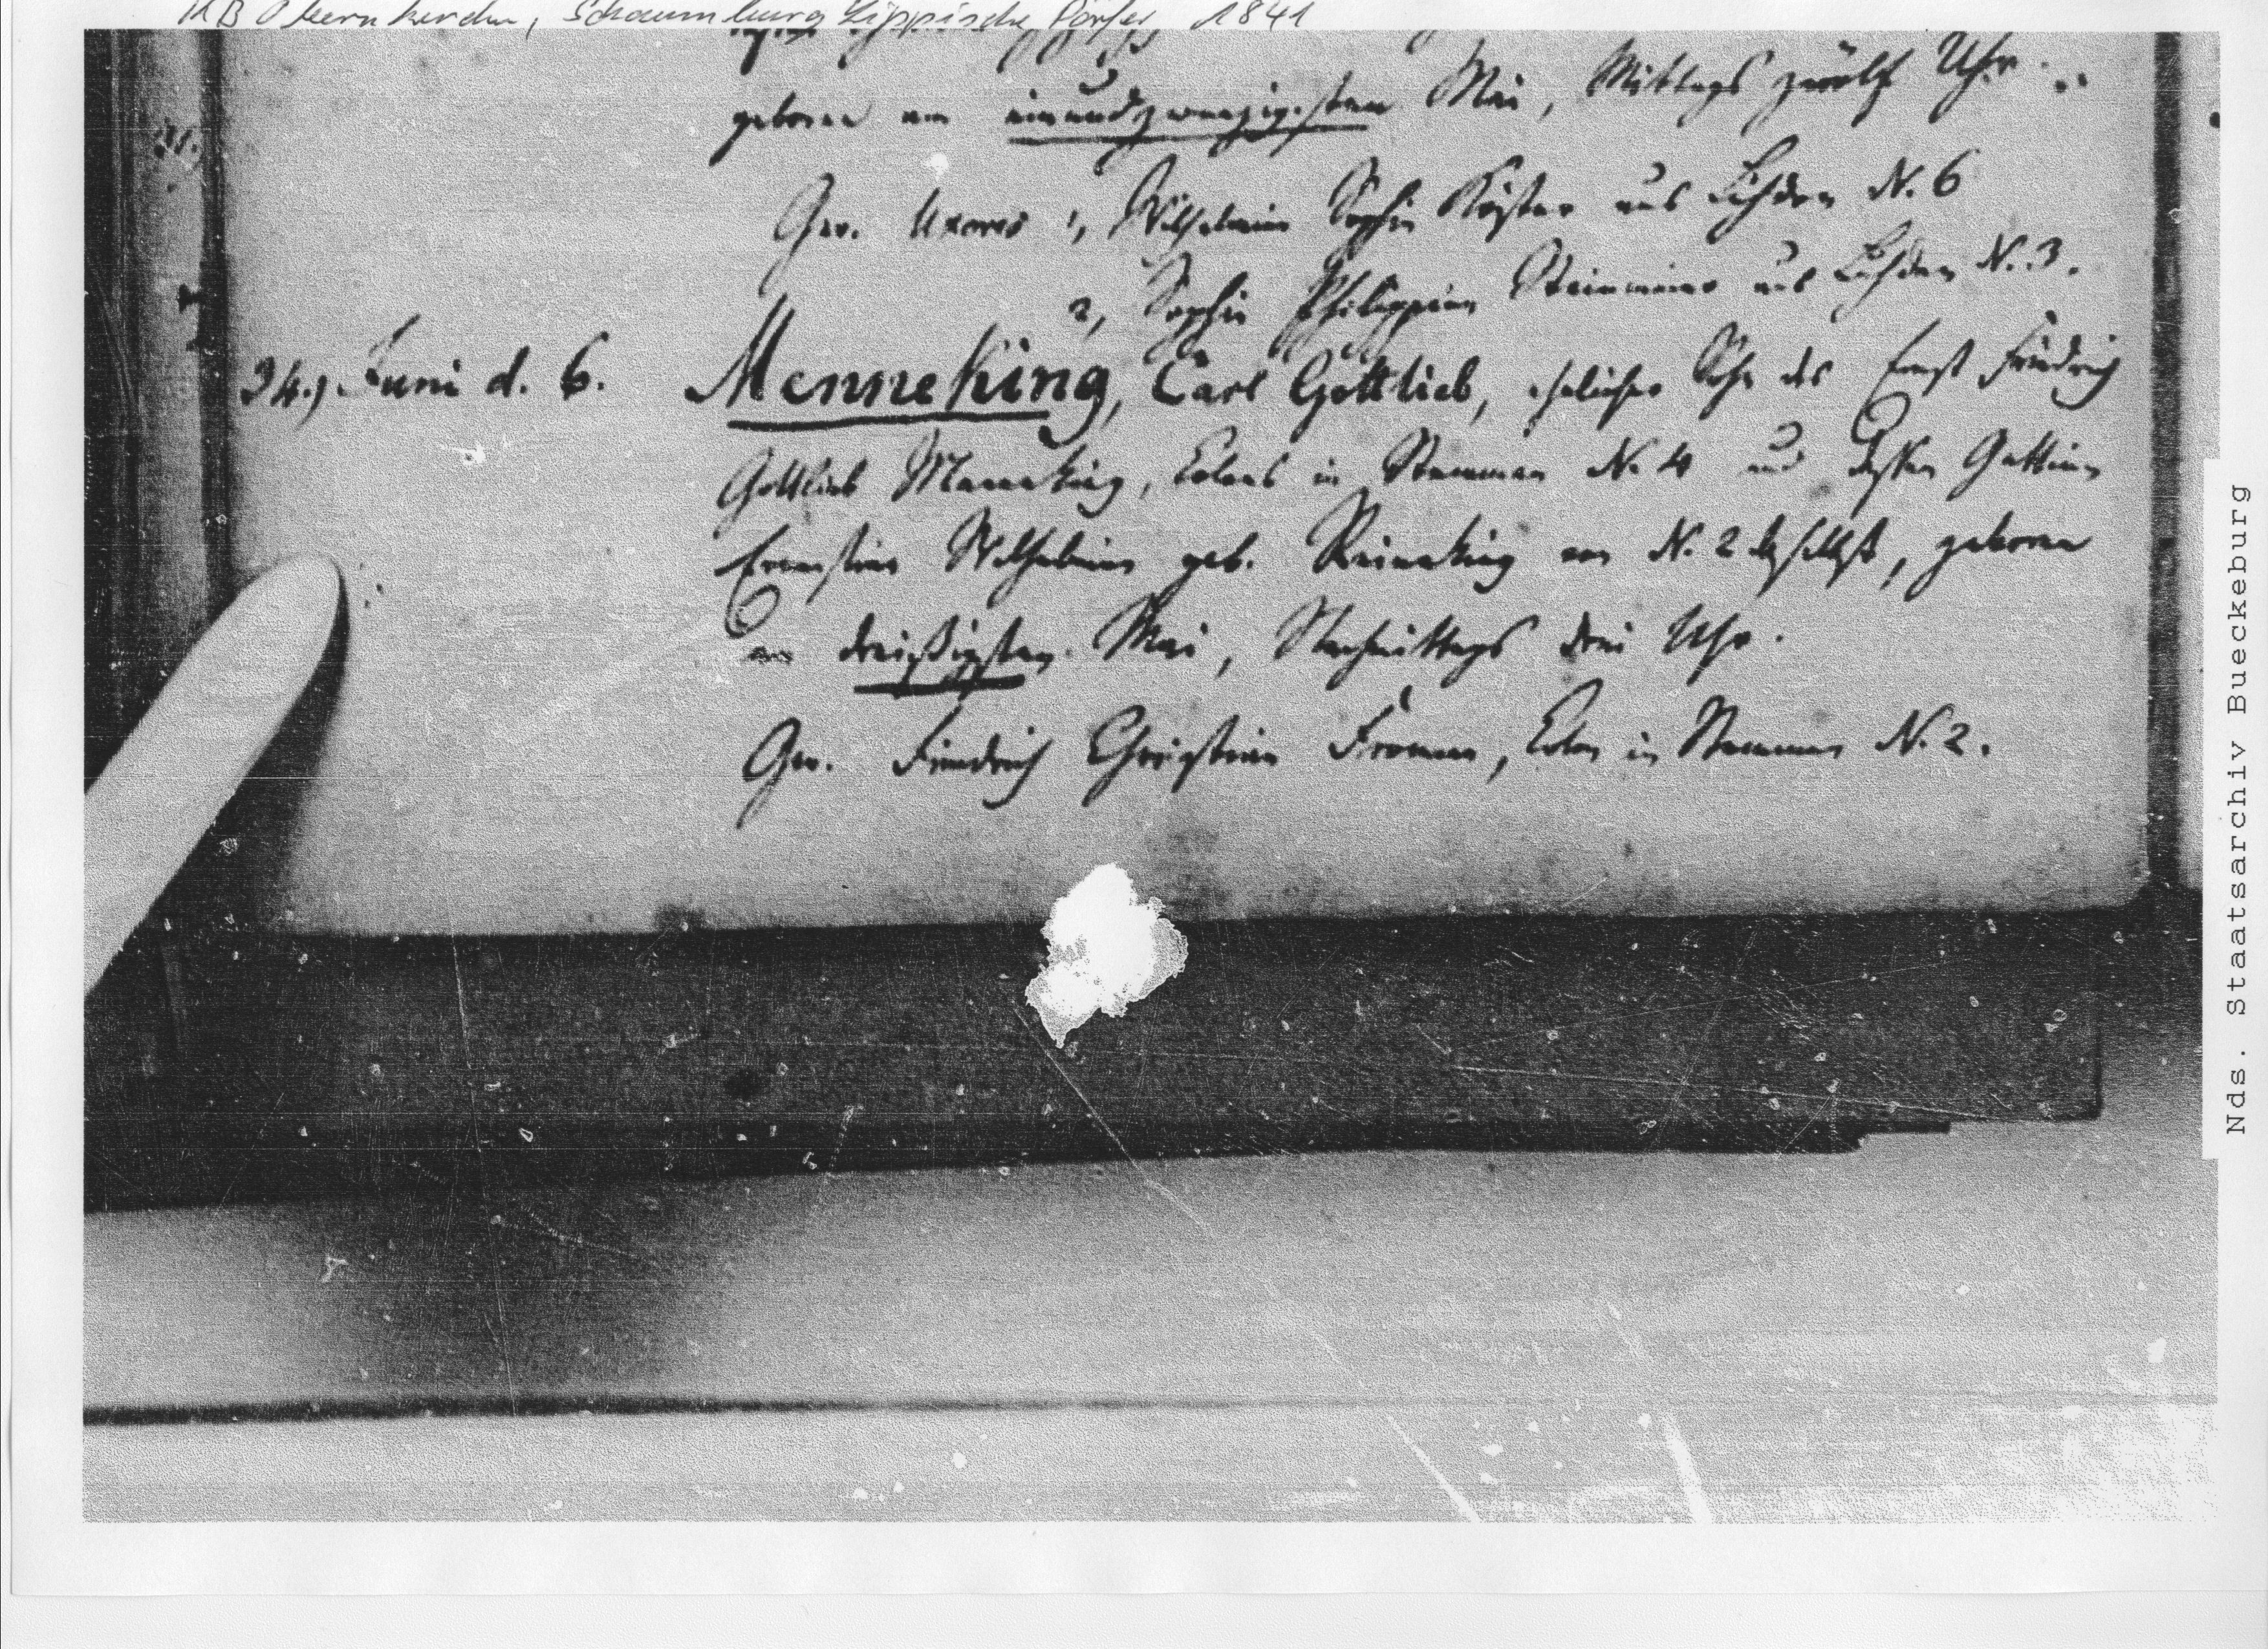 KB Obernkirchen, Schaumburg Lippische Dörfer, 1841
geboren am einundzwanzigsten Mai, Mittags zwölf Uhr.
Gev. Uxores 1, Wilhelmine Sophie Köster aus Lühden N. 6
2, Sophie Philippine Steinmeier aus Lühden N. 3.
34.) Juni d. 6. Menneking, Carl Gottlieb, ehelicher Sohn des Ernst Friedrich
Gottlieb Menneking, Colons in Stemmen N. 4 und dessen Gattinn
Ernestine Wilhelmine geb. Reineking von N. 2 daselbst, geboren
am dreißigsten Mai, Nachmittags drei Uhr.
Gev. Friedrich Christian Fromme, Colon in Stemmen N. 2.
Nds. Staatsarchiv Bueckeburg